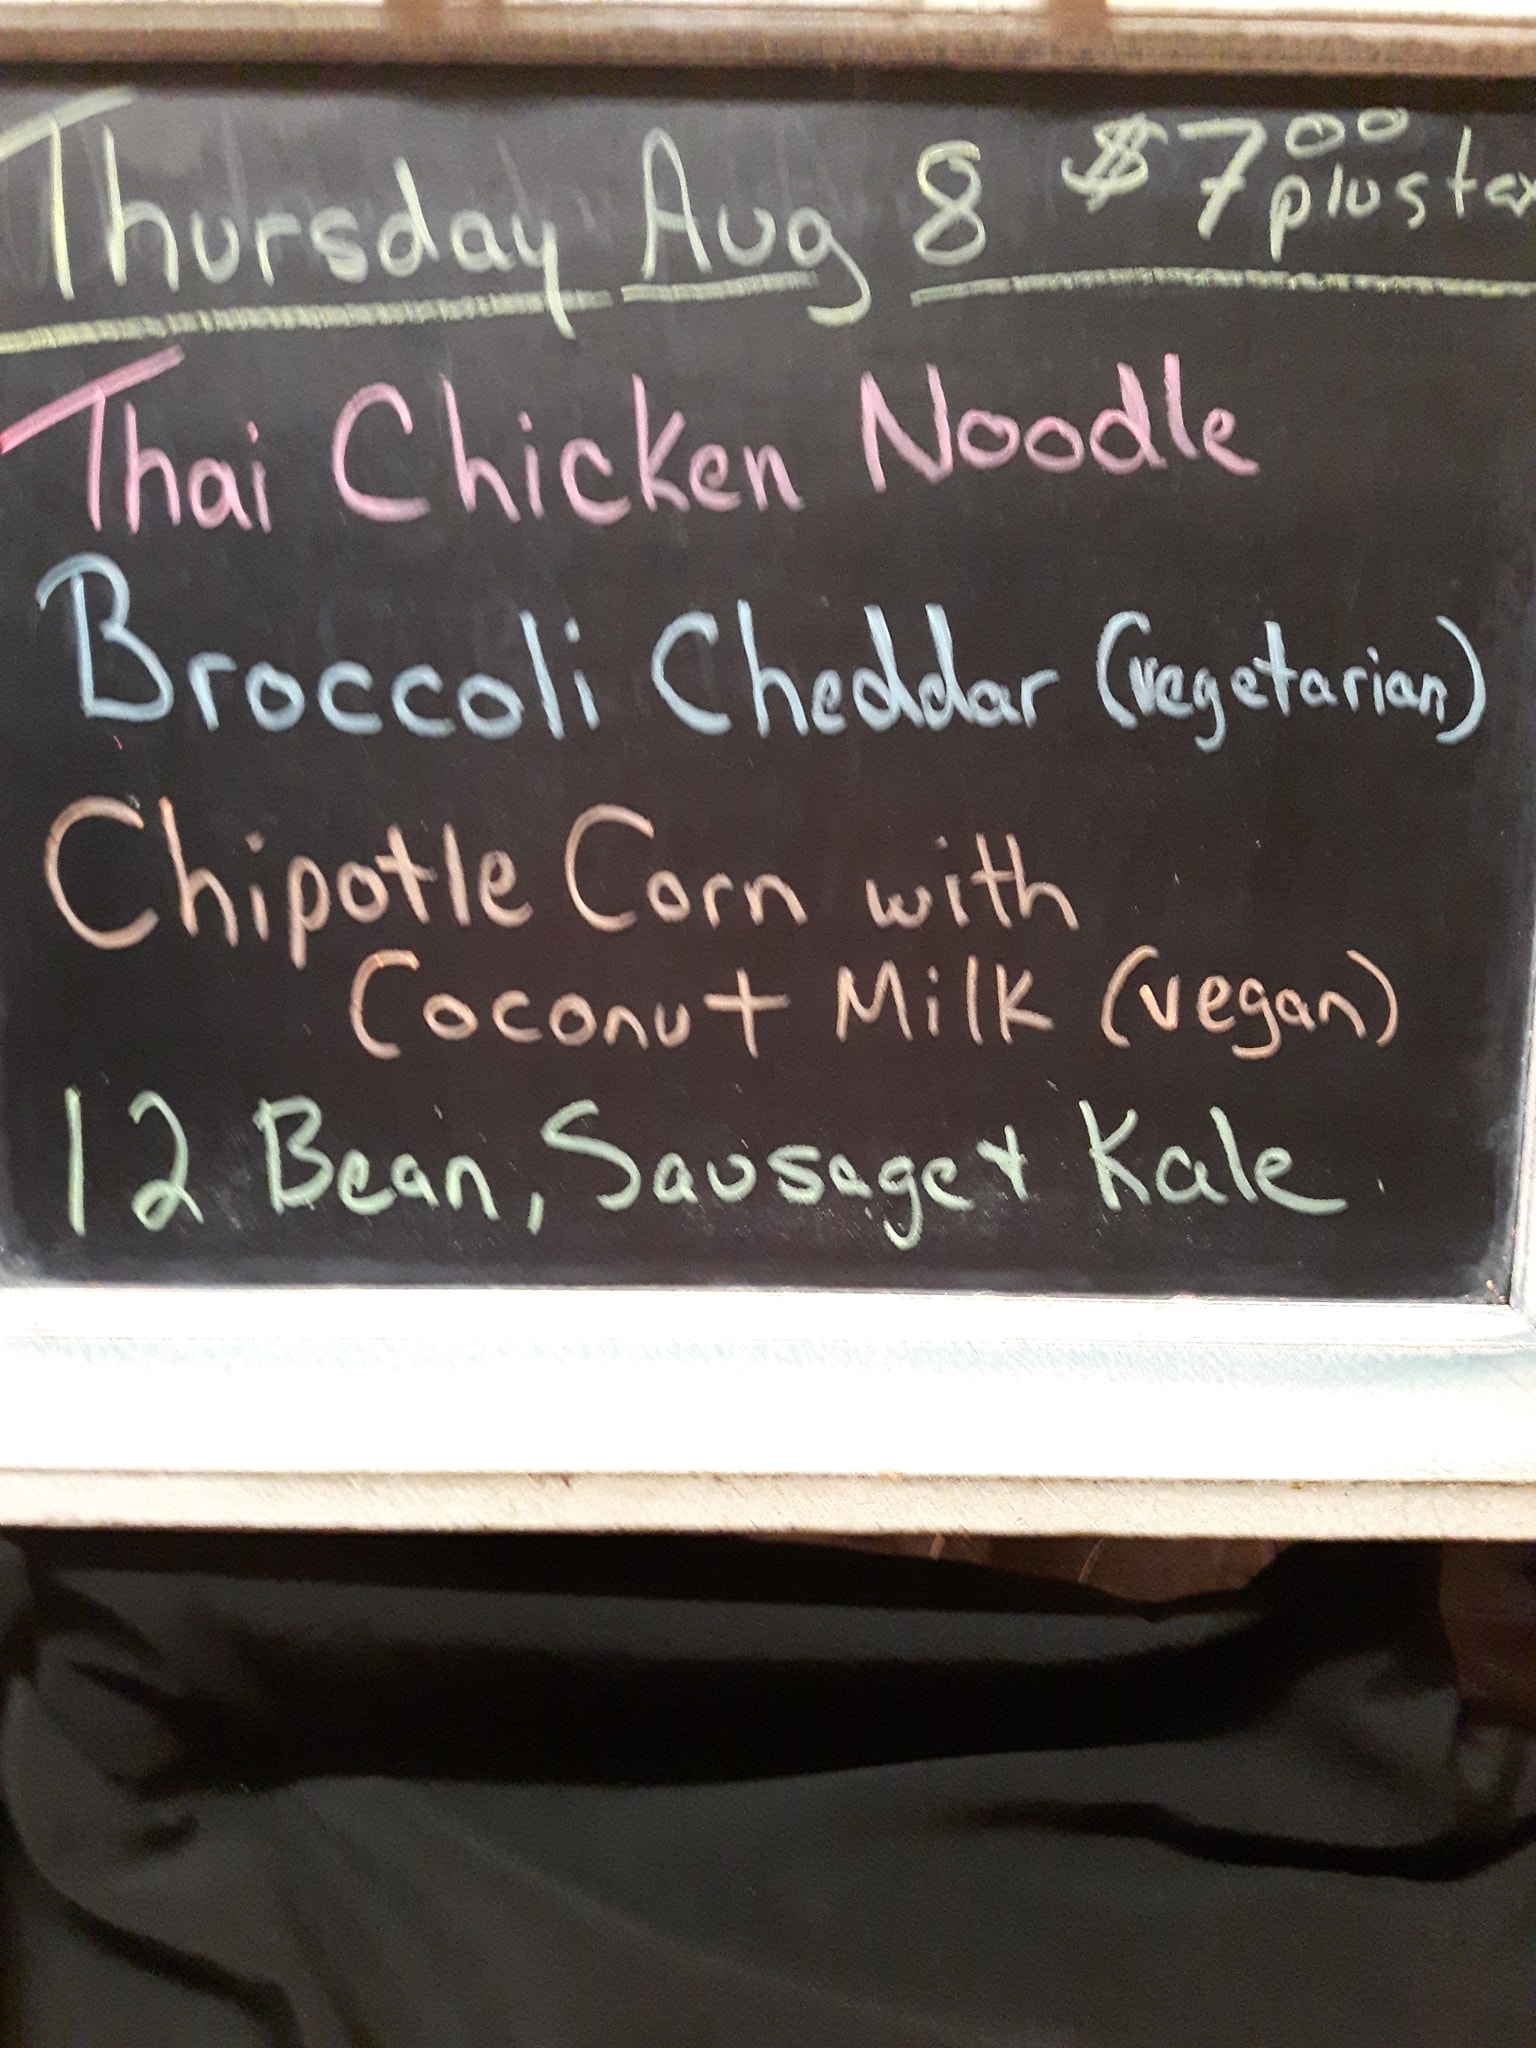 Thursday Aug 8 $7.00 plus tax
Thai Chicken Noodle
Broccoli Cheddar (vegetarian)
Chipotle Corn with
Coconut Milk (vegan)
12 Bean, Sausage & Kale.